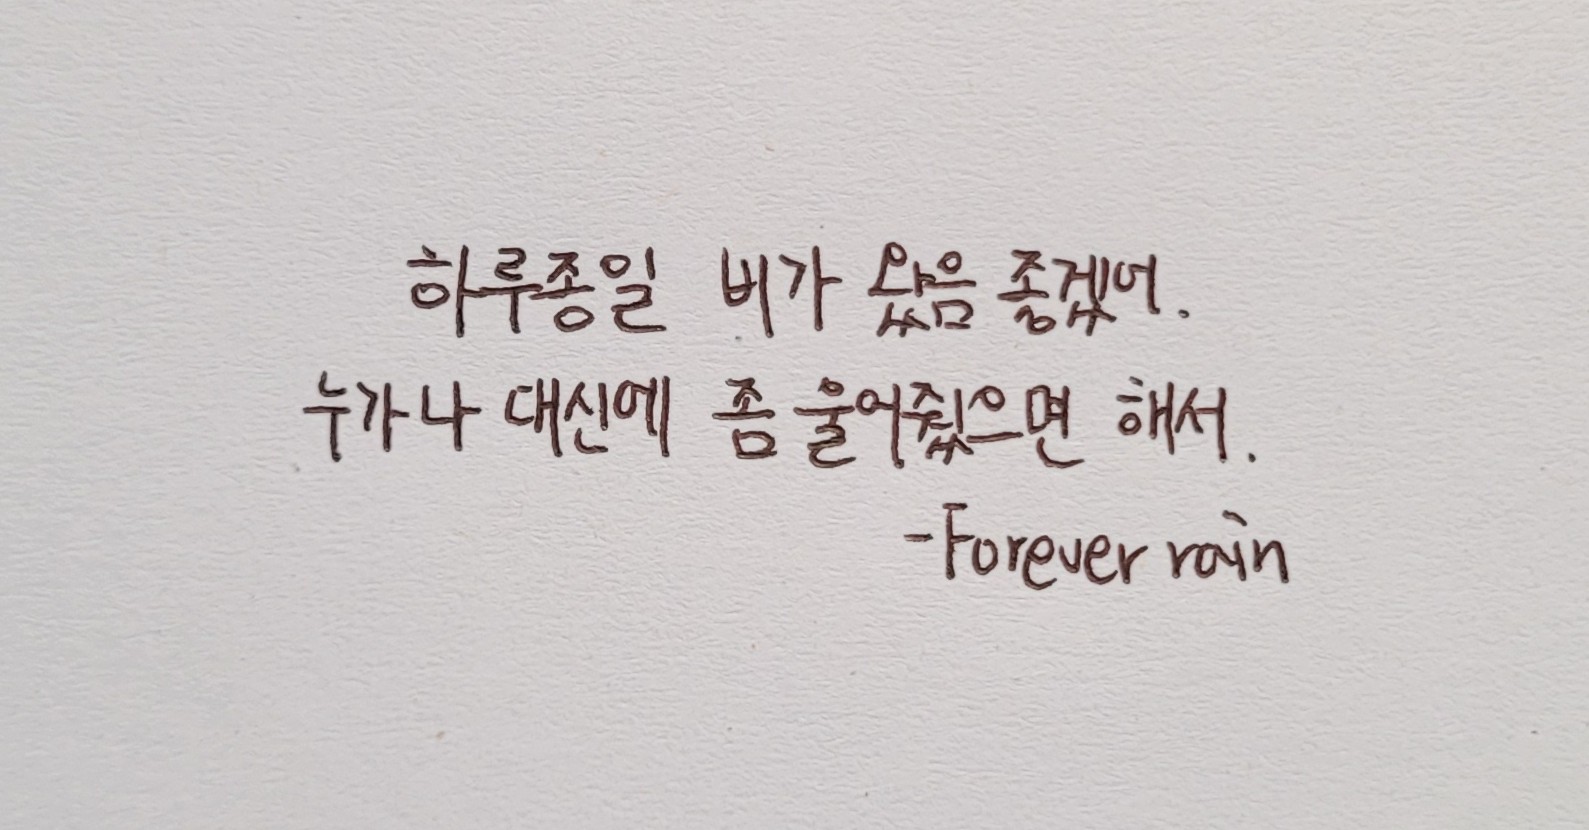 하루종일 비가 왔음 좋겠어.
누가나 대신에 좀 울어줬으면 해서.
-Forever rain